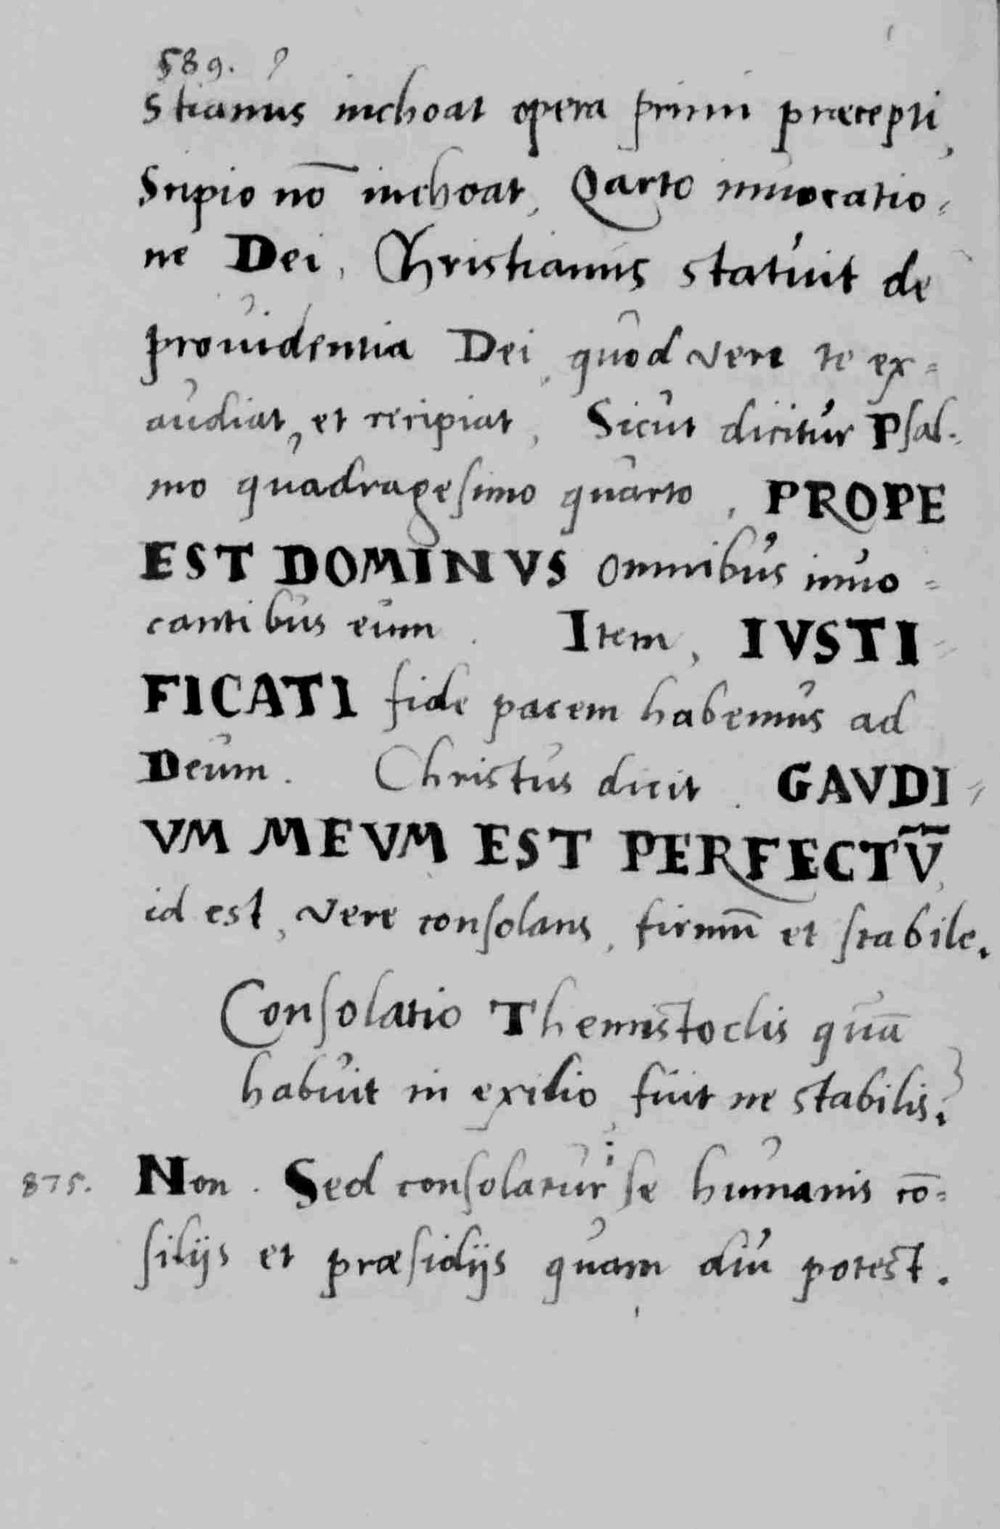 589.
stianus inchoat opera primi præcepti,
Scipio nō inchoat, Qarto inuocatio-
ne Dei, Christianus statuit de
prouidentia Dei, quod vere te ex-
audiat, et recipiat, Sicut dicitur Psal-
mo quadragesimo quarto, PROPE
EST DOMINVS omnibus inuo-
cantibus eum. Item, IVSTI
FICATI fide pacem habemus ad
Deum. Christus dicit. GAVDI-
VM MEVM EST PERFECTV̄
id est, vere consolans, firmū et stabile.
Consolatio Themistoclis quā
habuit in exilio fuit ne stabilis?
875. Non. Sed consolatur se humanis cō-
silijs et præsidijs quam diu potest.